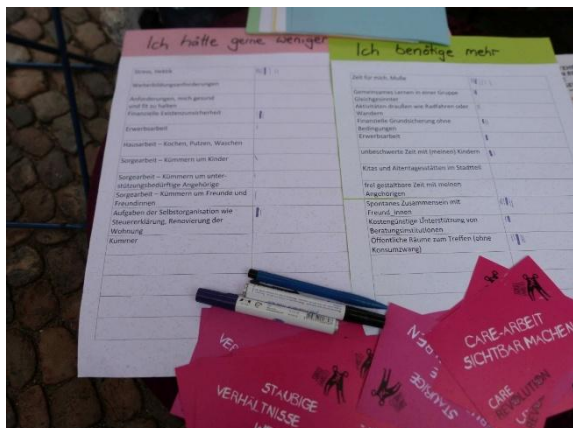 Ich hätte gerne weniger
Stress, Hektik
Weiterbildungsanforderungen
Anforderungen, mich gesund
und fit zu halten
Finanzielle Existenzunsicherheit
Erwerbsarbeit
Hausarbeit – Kochen, Putzen, Waschen
Sorgearbeit – Kümmern um Kinder
Sorgearbeit – Kümmern um unter-
stützungsbedürftige Angehörige
Sorgearbeit – Kümmern um Freunde und
Freundinnen
Aufgaben der Selbstorganisation wie
Steuererklärung, Renovierung der
Wohnung
Kummer
Ich benötige mehr
Zeit für mich, Muße
Gemeinsames Lernen in einer Gruppe
Gleichgesinnter
Aktivitäten draußen wie Radfahren oder
Wandern
Finanzielle Grundsicherung ohne
Bedingungen
Erwerbsarbeit
unbeschwerte Zeit mit (meinen) Kindern
Kitas und Altentagesstätten im Stadtteil
frei gestaltbare Zeit mit meinen
Angehörigen
Spontanes Zusammensein mit
Freund_innen
Kostengünstige Unterstützung von
Beratungsinstitutionen
Öffentliche Räume zum Treffen (ohne
Konsumzwang)
STAUBIGE
VERHÄLTNISSE
STAUBIGE
CARE-ARBEIT
SICHTBAR MACHEN
CARE
REVOLUTION